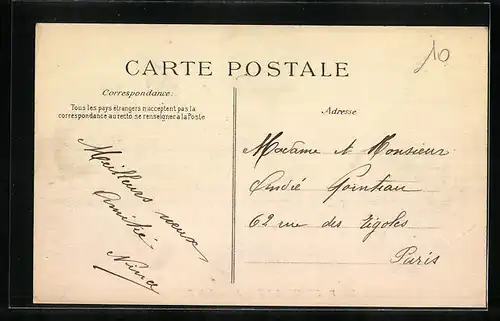 10
CARTE POSTALE
Correspondance:
Tous les pays étrangers n'acceptent pas la
correspondance au recto, se renseigner à la Poste
Meilleurs vœux
Amitié
Nina
Adresse
Madame et Monsieur
André Pointeau
62 rue des Rigoles
Paris